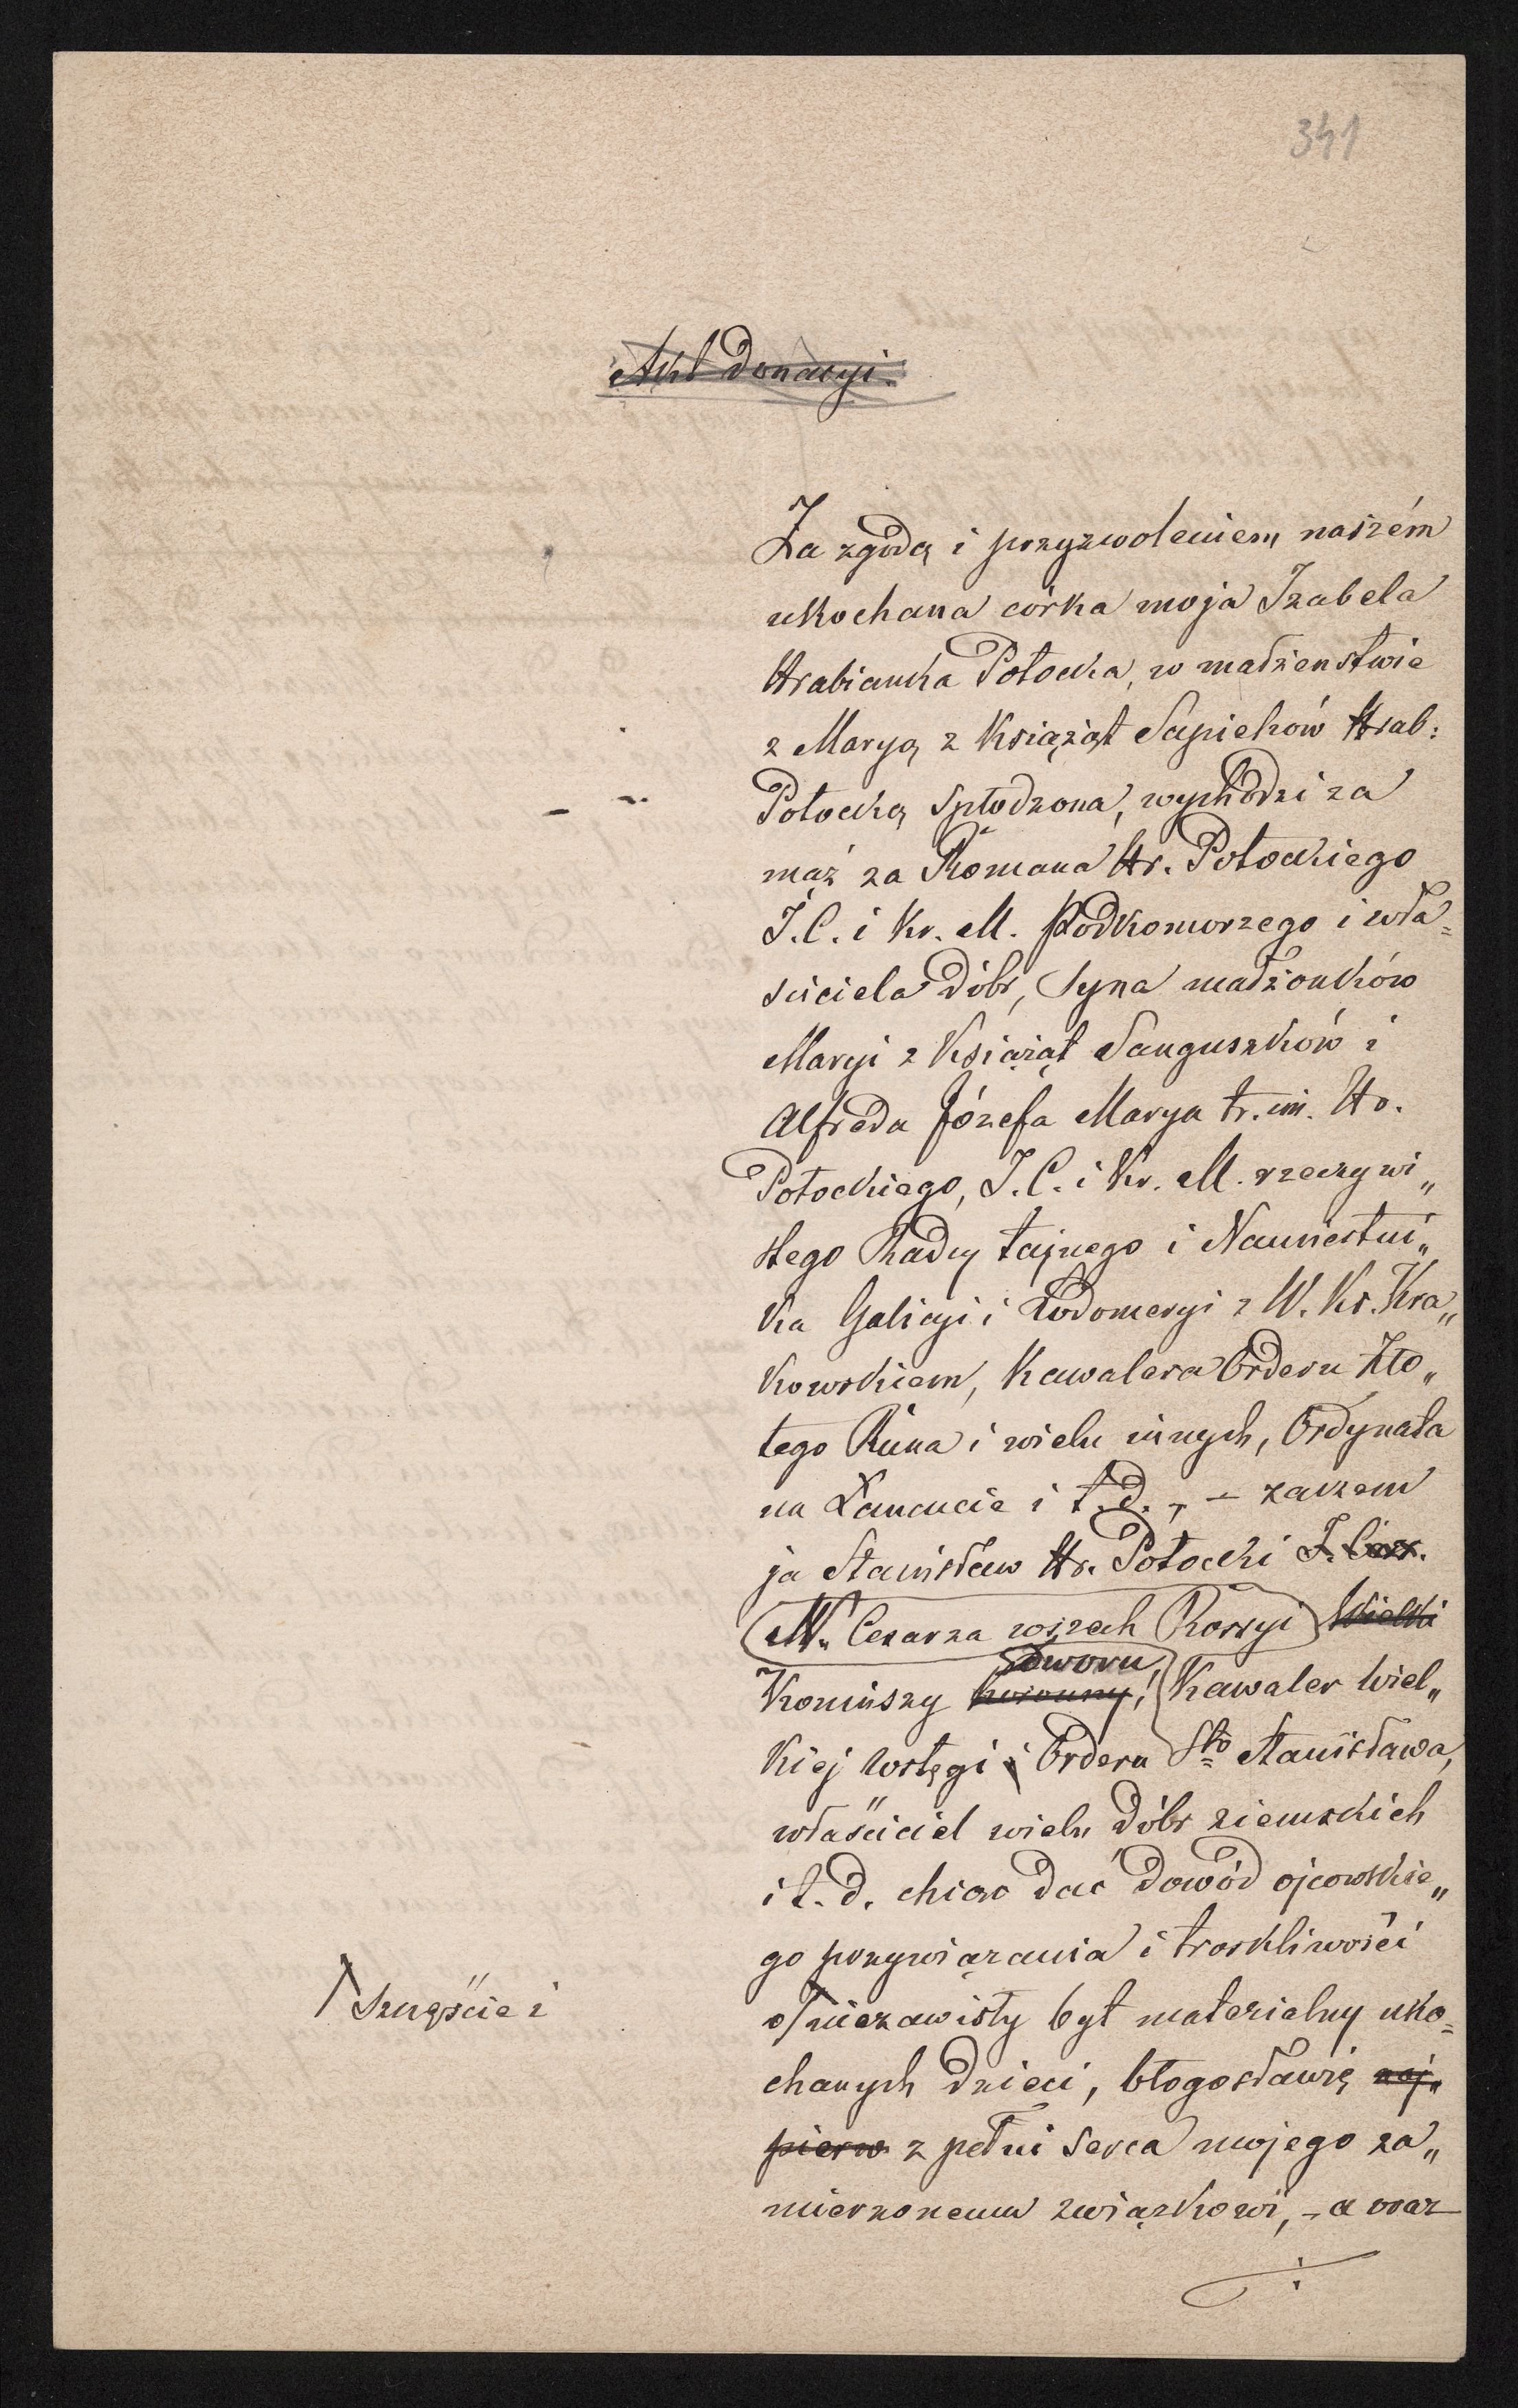 341
Akt Donacyi.
Za zgodą i przyzwoleniem naszém
ukochana córka moja Izabela
Hrabianka Potocka, w małżeństwie
z Maryą z Książąt Sapiehów Hrab:
Potocką spłodzona, wychodzi za
mąż za Romana Hr. Potockiego
J. C. i Kr. M. Podkomorzego i wła=
ściciela dóbr, syna małżonków
Maryi z Książąt Sanguszków i
Alfreda Józefa Marya tr. im. Hr.
Potockiego, J. C. i Kr. M. rzeczywi„
stego Radcy tajnego i Namiestni„
ka Galicyi i Lodomeryi z W. Ks. Kra„
kowskiem, Kawalera Orderu Zło„
tego Runa i wielu innych, Ordynata
na Łańcucie i t. d., – zaczem
ja Stanisław Hr. Potocki J. Ces.
M. Cesarza wszech Rossyi Wielki
dworu
Koniuszy koronny, Kawaler Wiel„
kiej wstęgi i Orderu Sto Stanisława,
właściciel wielu dóbr ziemskich
i t. d. chcąc dać dowód ojcowskie„
go przywiązania i troskliwości
Szczęście i
o niezawisły byt materialny uko=
chanych dzieci, błogosławię naj„
pierw z pełni serca mojego za„
mierzonemu związkowi, – a oraz